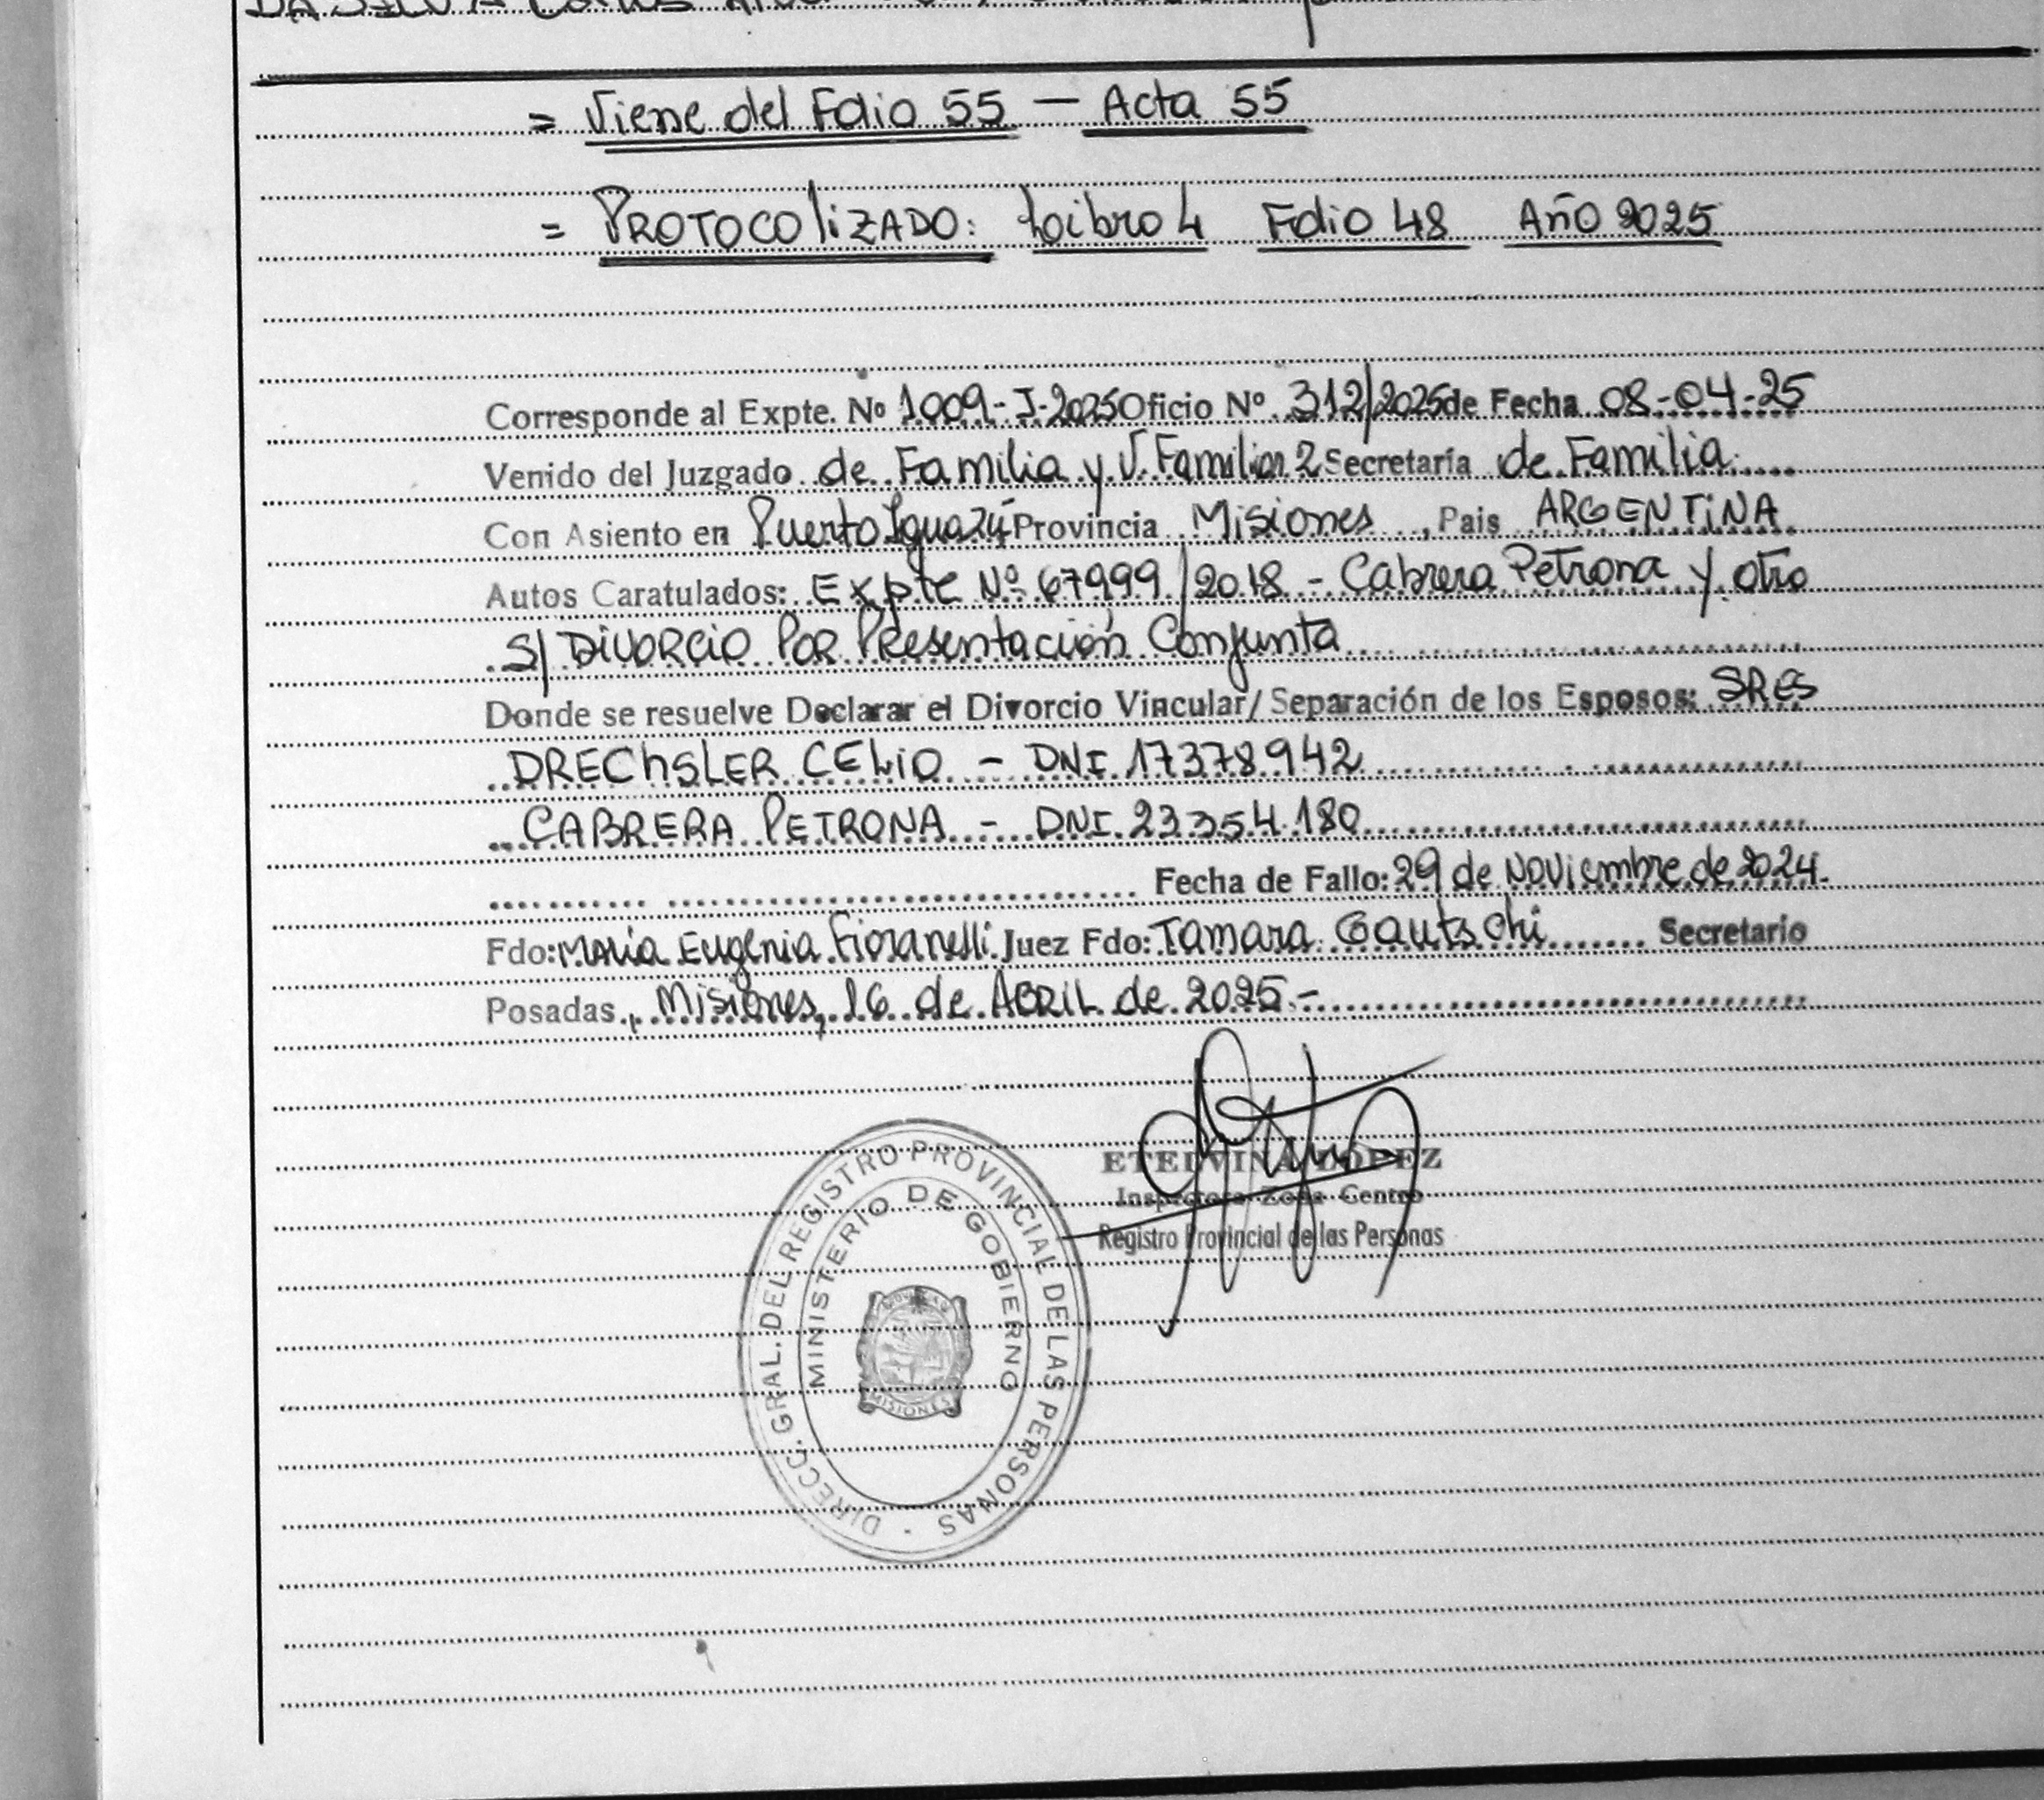 DA SILVA Carlos
= Viene del Folio 55 — Acta 55
= PROTOCOLIZADO: Libro 4 Folio 48 Año 2025
Corresponde al Expte. Nº 1009-J-2025 Oficio Nº 312/2025 de Fecha 08-04-25
Venido del Juzgado de Familia y V. Familiar 2 Secretaría de Familia
Con Asiento en Puerto Iguazú Provincia Misiones, Pais ARGENTINA
Autos Caratulados: Expte Nº 67999/2018 - Cabrera Petrona y otro
S/ Divorcio Por Presentación Conjunta
Donde se resuelve Declarar el Divorcio Vincular/ Separación de los Esposos: SRES
DRECHSLER CELIO - DNI 17378942
CABRERA PETRONA - DNI 23354180
Fecha de Fallo: 29 de Noviembre de 2024.
Fdo: Maria Eugenia Fioranelli Juez Fdo: Tamara Gautschi Secretario
Posadas, Misiones, 16 de ABRIL de 2025.-
ETELVINA LOPEZ
Inspectora Zona Centro
Registro Provincial de las Personas
DIRECC. GRAL. DEL REGISTRO PROVINCIAL DE LAS PERSONAS
MINISTERIO DE GOBIERNO
MISIONES